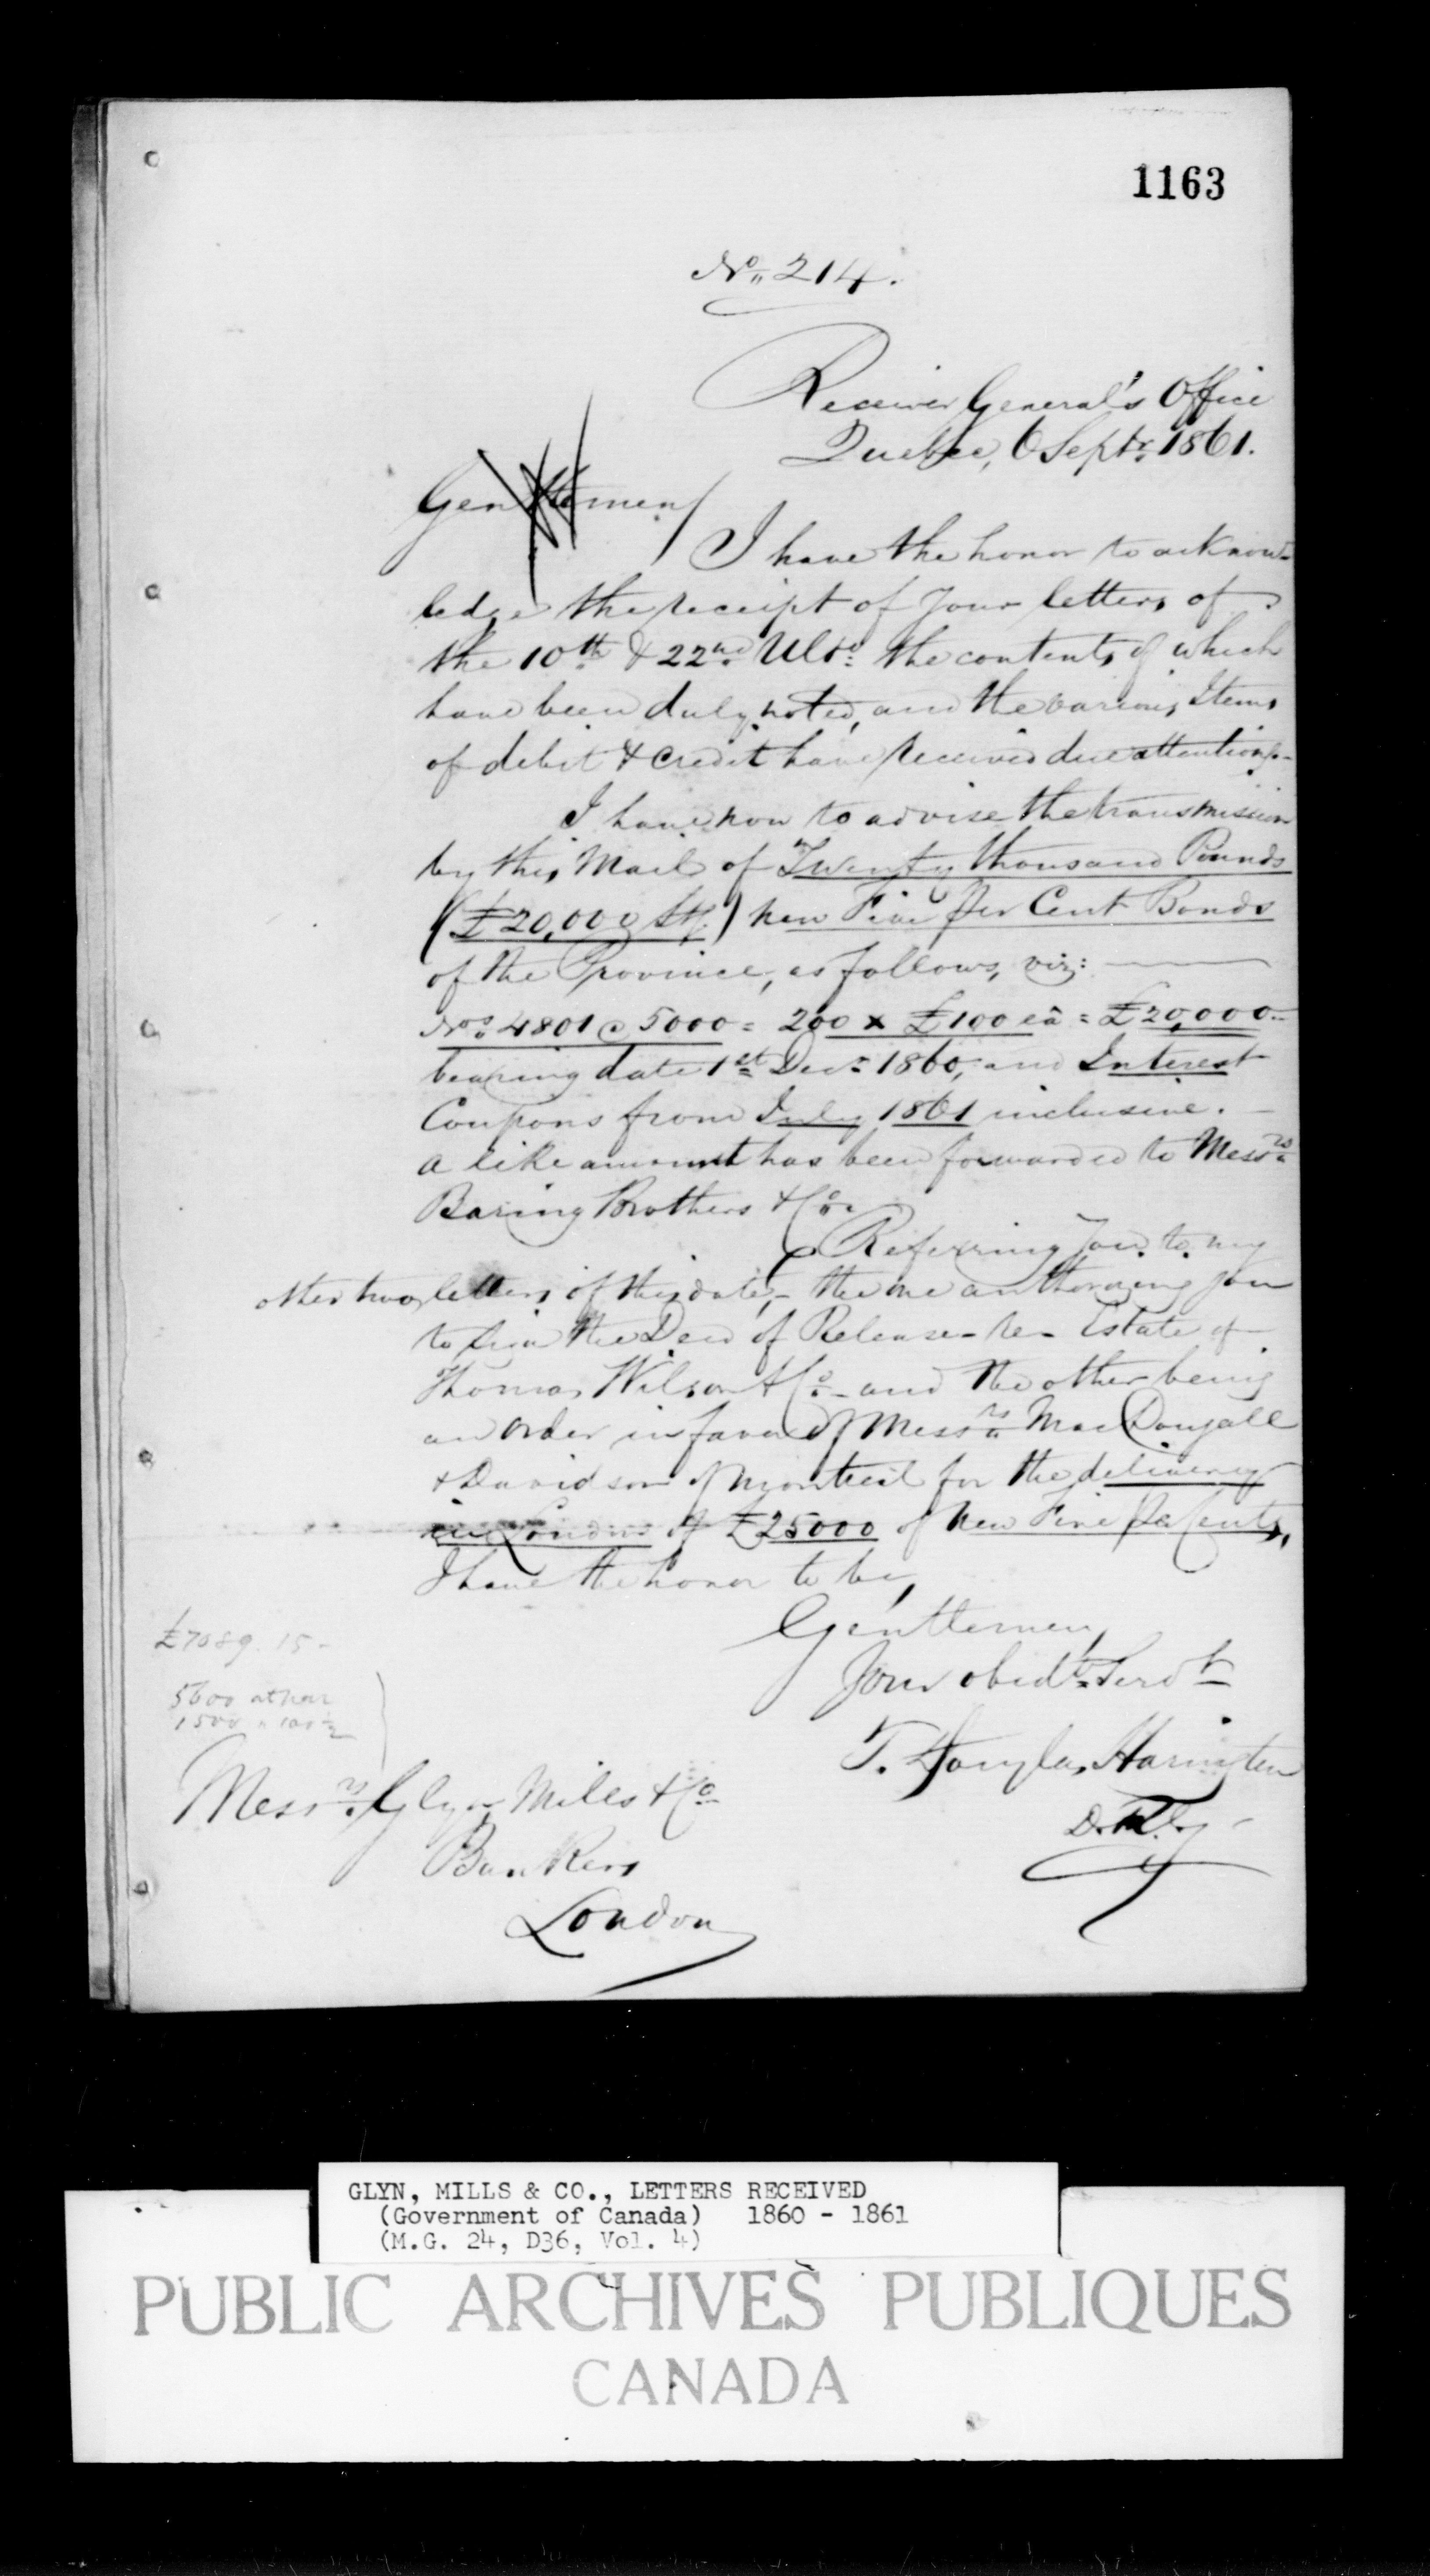 1163
No. 214.
Receiver General's Office
Quebec, 6 Septr. 1861.
Gentlemen,
I have the honor to acknow-
ledge the receipt of your letters of
the 10th & 22nd Ulto. the contents of which
have been duly noted, and the various Items
of debit & credit have received due attention.-
I have now to advise the transmission
by this Mail of Twenty thousand Pounds
(£20,000 Stg.) new Five per Cent Bonds
of the Province, as follows, viz:
Nos. 4801 @ 5000 = 200 x £100 ea = £20,000-
bearing date 1st Decr. 1860, and Interest
Coupons from July 1861 inclusive. -
a like amount has been forwarded to Messrs
Baring Brothers & Co.
Referring you to my
other two letters of this date,- the one authorizing you
to sign the Deed of Release - re - Estate of
Thomas Wilson & Co. - and the other being
an order in favor of Messrs MacDougall
& Davidson of Montreal for the delivery
in London of £25000 of new Five per Cents,
I have the honor to be,
Gentlemen,
Your obedt. Servt
T. Douglas Harington
D.R.G.
£7089.15-
5600 at par
1500 " 100½
Messrs. Glyn Mills & Co
Bankers
London
GLYN, MILLS & CO., LETTERS RECEIVED
(Government of Canada) 1860 - 1861
(M.G. 24, D36, Vol. 4)
PUBLIC ARCHIVES PUBLIQUES
CANADA